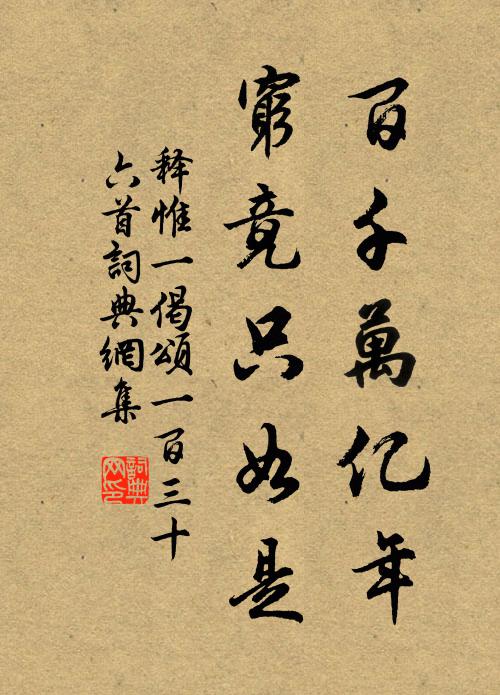 百千萬亿年
窮竟只如是
释惟一偈頌一百三十
六首詞典網集
詞典网印